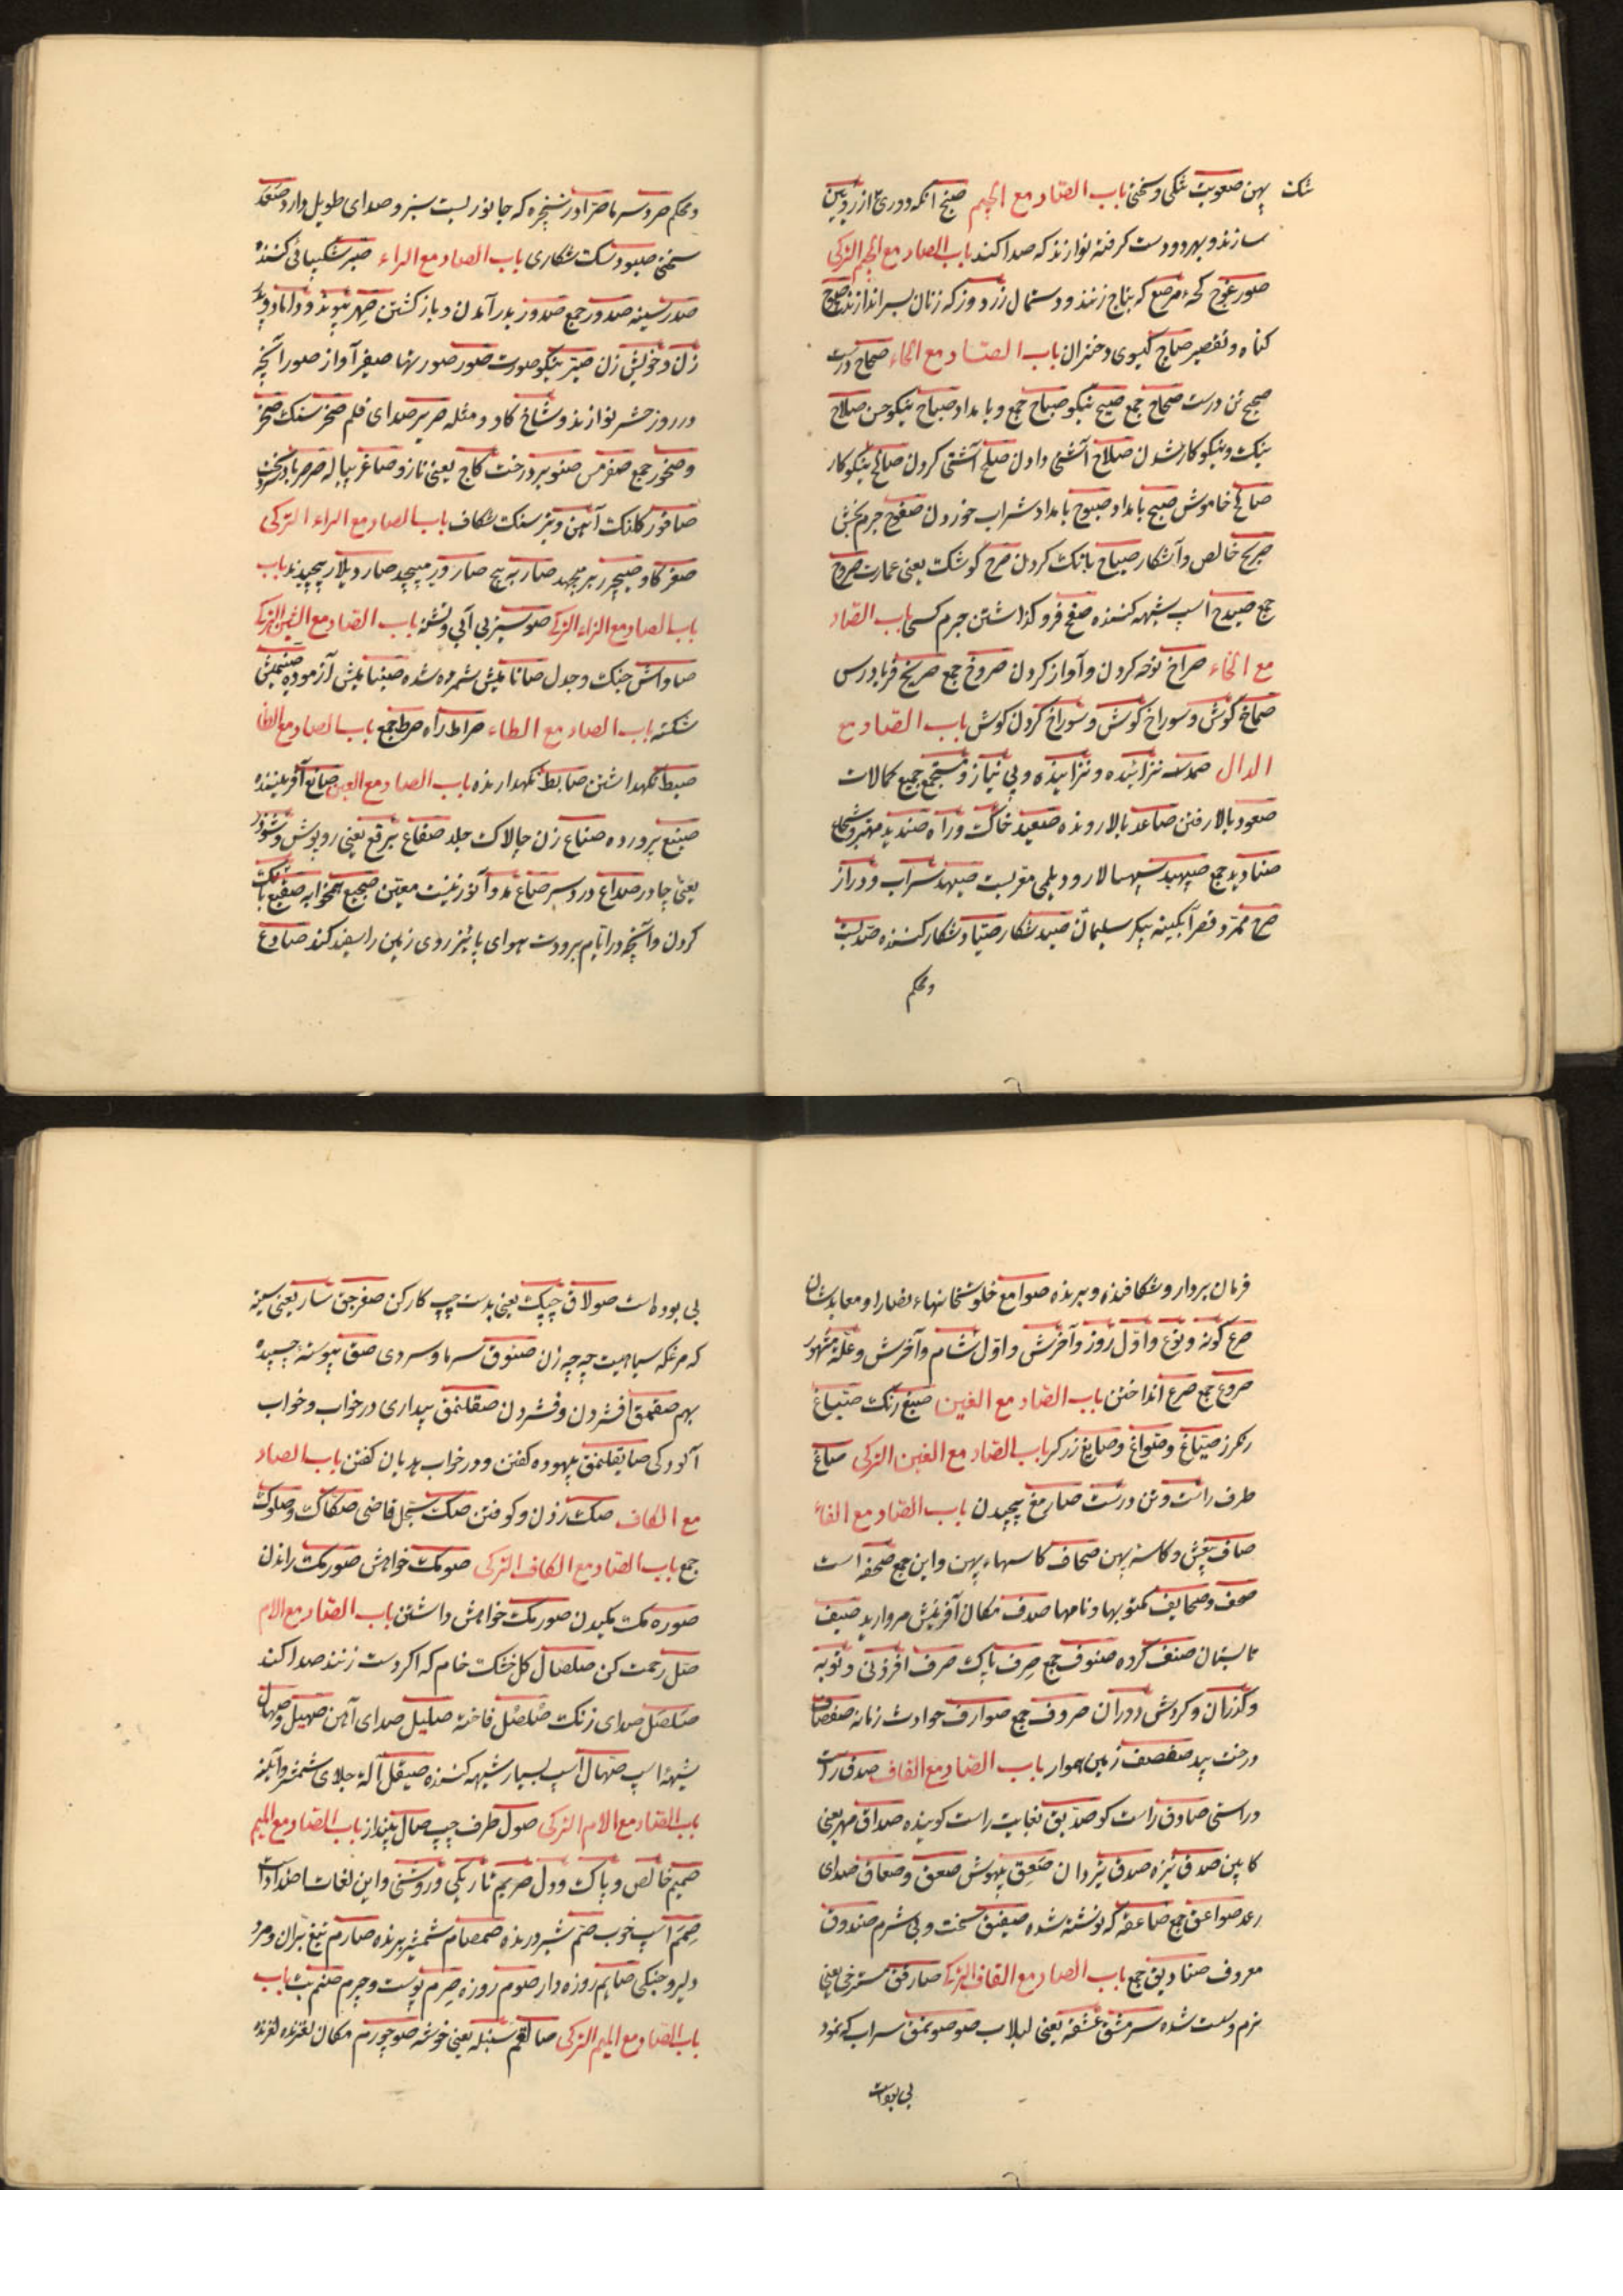 تنک پهن صعوبت تنکی و سختی باب الصّاد مع الجیم صنج آنکه دوری از رویین
سازند و بهر دو دست کرفته نوازند که صدا کند باب الصاد مع الجیم الترکی
صورغوج مرصع که بتاج زنند و دستمال زردوز که زنان بسر اندازند
کناه و تقصیر صاچ کیسوی دختران باب الصّاد مع الحاء صحاح درست
صحیح تن درست صحاح جمع صبیح نیکو صباح جمع و بامداد صباح نیکو حسن صلاح
نیک و نیکوکار شدن صلاح آشتی دادن صلح آشتی کردن صالح نیکوکار
صالح خاموش صبح بامداد صبوح بامداد شراب خوردن صفوح جرم بخش
صریح خالص و آشکار صیاح بانک کردن صرح کوشک یعنی عمارت صروح
جمع صیدح اسپ شیهه کننده صفح فرو کذاشتن جرم کسی باب الصّاد
مع الخاء صراخ نوحه کردن و آواز کردن صروخ جمع صریخ فریادرس
صماخ کوش و سوراخ کوش و سوراخ کردن کوش باب الصّاد مع
الدال صمد نزائیده و نزاییده و بی نیاز و مستجمع جمیع کمالات
صعود بالا رفتن صاعد بالا رونده صعید خاک و راه صندید مهتر و شجاع
صنادید جمع صپهبد سپهسالار و دیلمی معربست صیهد سراب و دراز
صرح ممرّد قصر آبکینه پیکر سلیمان صید شکار صیّاد شکار کننده صدّ
و محکم
و محکم صرد سرما صرّاد زنجره که جانوریست سبز و صدای طویل دارد صفد
سختی صیود سک شکاری باب الصاد مع الراء صبر شکیبائی کننده
صدر سینه صدور جمع صدور بدر آمدن و بازکشتن صهر پیوند و داماد و پدر
زن و خویش زن صیّر نیکو صورت صور صورتها صفیر آواز صور آنچه
در روز حشر نوازند و شاخ کاو و مثله صریر صدای قلم صخر سنک صخر
و صخور جمع صفر مس صنوبر درخت کاج یعنی ناژو صاغر پیاله صرصر باد سخت
صاقور کلنک آهن و تبر سنک شکاف باب الصاد مع الراء الترکی
صغر کاو صیچر برمیجهد صار به پیچ صارویر میپیچد صاردیلار پیچیدند باب
باب الصاد مع الزاء الترکی صوسیز بی آبی و تشنه باب الصّاد مع الشین الترکی
صاواش جنک و جدل صانانمیش شمرده شده صینانمیش آزموده صینمیش
شکسته باب الصاد مع الطاء صراط راه صرط جمع باب الصاد مع الظا
ضبط نکهداشتن ضابط نکهدارنده باب الصاد مع العین صانع آفریننده
صنیع پرورده صناع زن چالاک جلد صقاع برقع یعنی روپوش
یعنی چادر صداع درد سر صاع مد و آنوزنیست معیّن ضجیع همخوابه صقیع بانک
کردن و آنچه در ایّام برودت هوای پائیز روی زمین را سفید کند صادع
فرمان بردار و شکافنده و برنده صوامع خلوتخانهاء نصارا و معابدشان
صرع کونه و نوع و اوّل روز و آخرش و اوّل شام و آخرش و علّة مشهور
صروع جمع صرع انداختن باب الصّاد مع الغین صبغ رنک صبّاغ
رنکرز صیّاغ و صوّاغ و صایغ زرکر باب الصّاد مع الغین الترکی صاغ
طرف راست و تن درست صارمغ پیچیدن باب الصّاد مع الفاء
صاف بیغش و کاسه پهن صحاف کاسهاء پهن و این جمع صحفه است
صحف و صحایف مکتوبها و نامها صدف مکان آفرینش مروارید صیف
تابستان صنف کروه صنوف جمع صرف پاک صرف افزونی و توبه
و کذران و کردش دوران صروف جمع صوارف حوادث زمانه صفصاف
درخت بید صفصف زمین هموار باب الصّاد مع القاف صدق راست
و راستی صادق راستکو صدّیق بغایت راست کوینده صداق مهر یعنی
کابین صدق نیزه صدق نیز دان صعق بیهوش صعق و صعاق صدای
رعد صواعق جمع صاعقه که نوشته شده صفیق سخت و بی شرم صندوق
معروف صنادیق جمع باب الصاد مع القاف الترکی صارقق مسترخی یعنی
نرم و سست شده سرمشق عشقه یعنی لبلاب صوصونمق سراب که نمود
بی بوداست
بی بوده است صولاق چپک یعنی بدست چپ کارکن صغرجق سار یعنی سینه
که مرغکه سیاهیست چه چه زن صنوق سرما و سردی صق پیوسته چسپیده
بهم صقمق افشردن و فشردن صقلنمق بیداری در خواب و خواب
آلودکی صایقلنمق بیهوده کفتن و در خواب هذیان کفتن باب الصاد
مع الکاف صک زدن و کوفتن صک سجل قاضی صکاک و صکوک
جمع باب الصّاد مع الکاف الترکی صومک خواهش صورمک راندن
صورمک مکیدن صورمک خواهش داشتن باب الصّاد مع الام
صلّ رحمت کن صلصال کل خشک خام که اکر دست زنند صدا کند
صلصل صدای زنک صلصل فاخته صلیل صدای آهن صهیل و صهال
شیهۀ اسپ صهّال اسپ بسیار شیهه کننده صیقل آلۀ جلای شمشیر و آینه
باب الصّاد مع الام الترکی صول طرف چپ صال بینداز باب الصّاد مع المیم
صمیم خالص و پاک و دل صریم تاریکی و روشنی و این لغات اضداد است
صمم اسپ خوب صمّ شیر درنده صمصام شمشیر برنده صارم تیغ بران و مرد
دلیر و جنکی صایم روزه دار صوم روزه صرم پوست و چرم صنم بت باب
باب الصّاد مع المیم الترکی صالقم سنبله یعنی خوشه صوچورم مکان لغزنده لغزنده